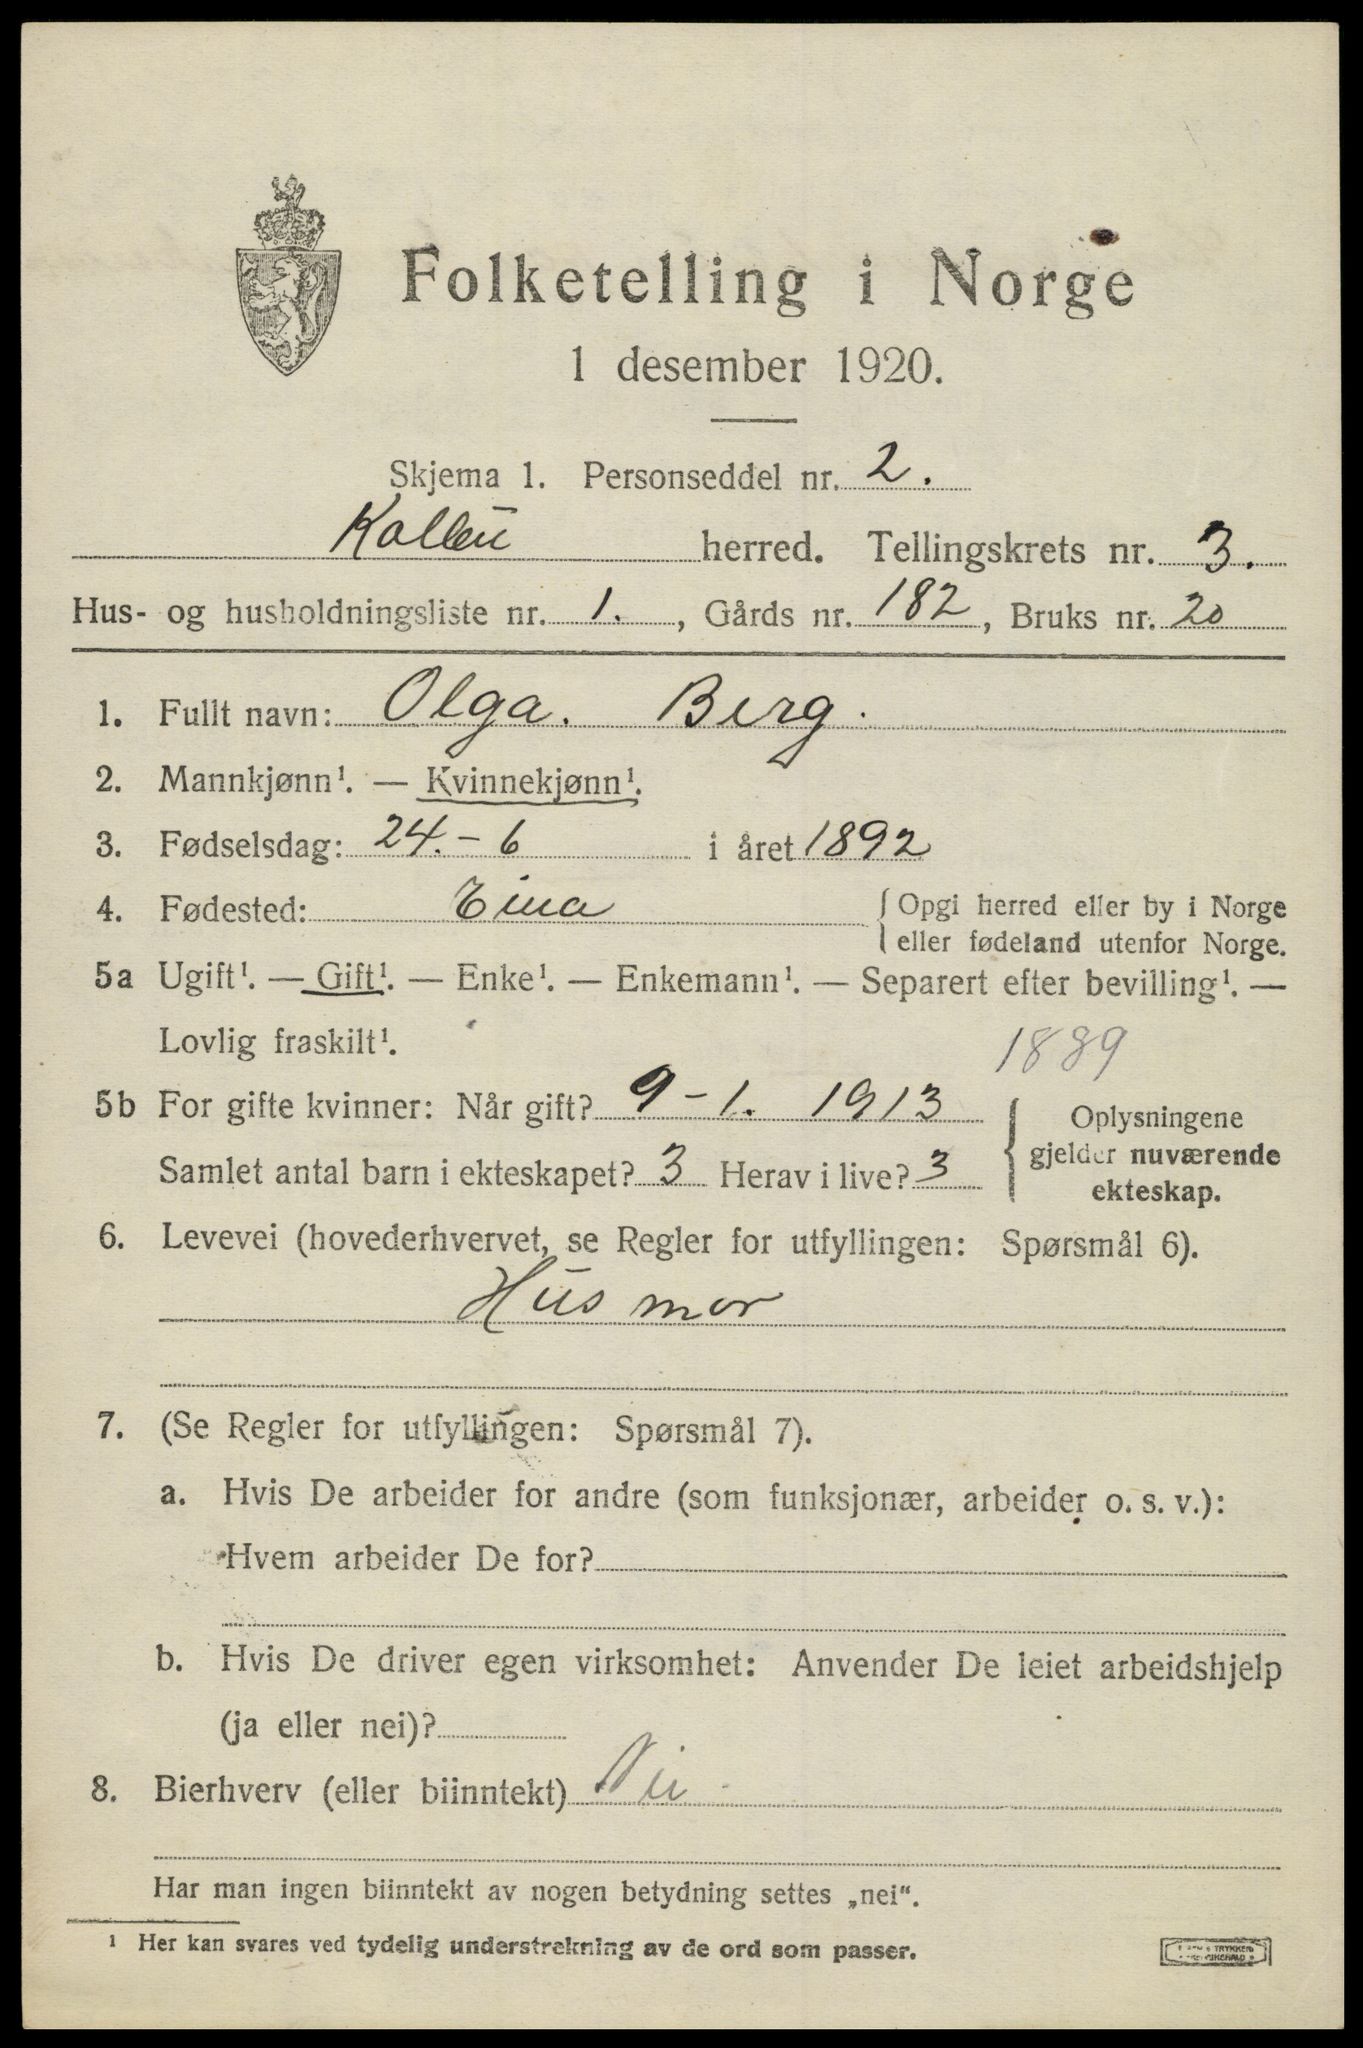 Folketelling i Norge
1 desember 1920.
Skjema 1. Personseddel nr. 2.
Kolbu herred. Tellingskrets nr. 3.
Hus- og husholdningsliste nr. 1., Gårds nr. 182, Bruks nr. 20
1. Fullt navn: Olga. Berg.
2. Mannkjønn¹. — Kvinnekjønn¹.
3. Fødselsdag: 24. - 6 i året 1892
4. Fødested: Eina { Opgi herred eller by i Norge
eller fødeland utenfor Norge.
5a Ugift¹. — Gift¹. — Enke¹. — Enkemann¹. — Separert efter bevilling¹. —
Lovlig fraskilt¹. 1889
5b For gifte kvinner: Når gift? 9 - 1. 1913
Samlet antal barn i ekteskapet? 3 Herav i live? 3
Oplysningene
gjelder nuværende
ekteskap.
6. Levevei (hovederhvervet, se Regler for utfyllingen: Spørsmål 6).
Husmor
7. (Se Regler for utfyllingen: Spørsmål 7).
a. Hvis De arbeider for andre (som funksjonær, arbeider o. s. v.):
Hvem arbeider De for?
b. Hvis De driver egen virksomhet: Anvender De leiet arbeidshjelp
(ja eller nei)?
8. Bierhverv (eller biinntekt) Nei
Har man ingen biinntekt av nogen betydning settes „nei“.
¹ Her kan svares ved tydelig understrekning av de ord som passer.